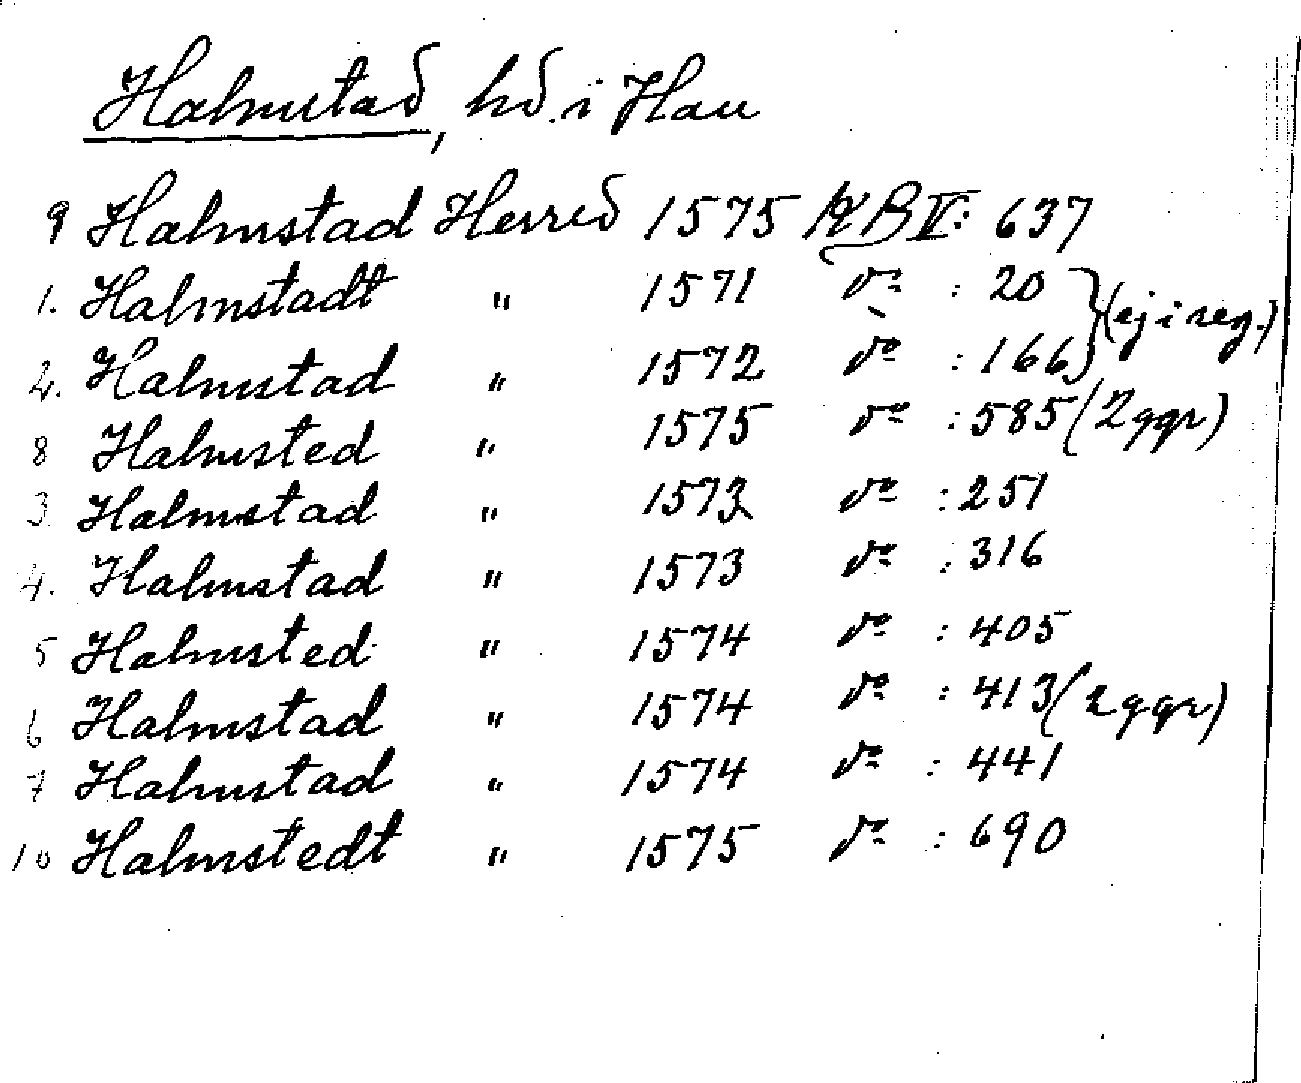 Halmstad, hd. i Hall
9 Halmstad Herred 1575 KB V: 637
1. Halmstadt " 1571 do : 20 } (ej i reg.)
2. Halmstad " 1572 do : 166
8 Halmsted " 1575 do : 585 (2 ggr)
3. Halmstad " 1573 do : 251
4. Halmstad " 1573 do : 316
5 Halmsted " 1574 do : 405
6 Halmstad " 1574 do : 413 (2 ggr)
7 Halmstad " 1574 do : 441
10 Halmstedt " 1575 do : 690